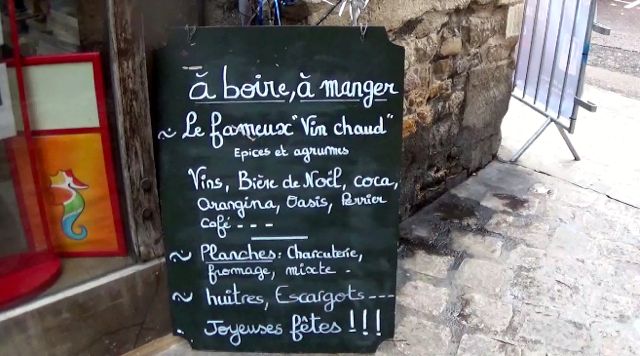 à boire, à manger
~ Le fameux "Vin chaud"
Epices et agrumes
Vins, Bière de Noël, coca,
Orangina, Oasis, Perrier
Café - - -
~ Planches: Charcuterie,
fromage, mixte -
~ huitres, Escargots ---
Joyeuses fêtes !!!